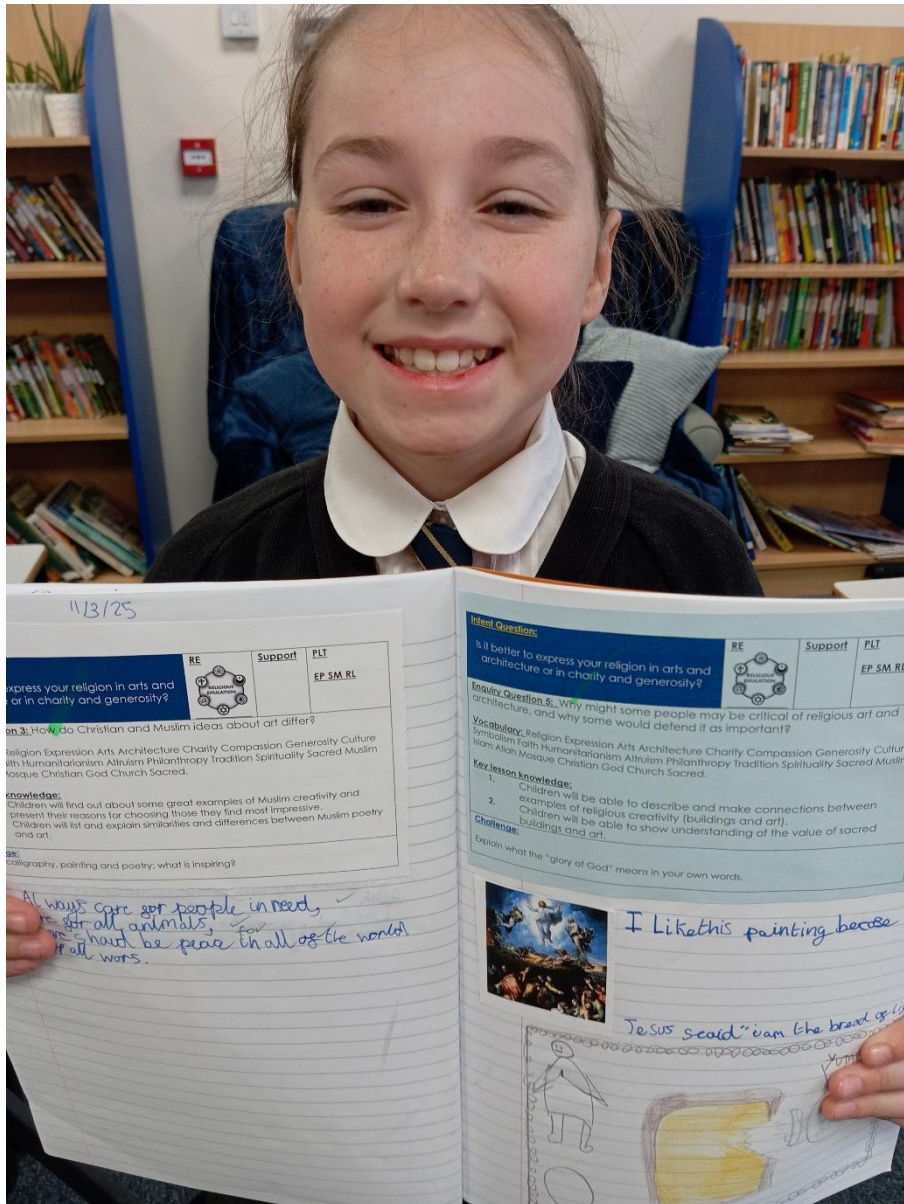 11/3/25
express your religion in arts and
or in charity and generosity?
RE
RELIGIOUS
EDUCATION
Support
PLT
EP SM RL
on 3: How do Christian and Muslim ideas about art differ?
Religion Expression Arts Architecture Charity Compassion Generosity Culture
Faith Humanitarianism Altruism Philanthropy Tradition Spirituality Sacred Muslim
Mosque Christian God Church Sacred.
knowledge:
Children will find out about some great examples of Muslim creativity and
present their reasons for choosing those they find most impressive.
Children will list and explain similarities and differences between Muslim poetry
and art.
ge:
calligraphy, painting and poetry: what is inspiring?
Always care for people in need,
for all animals,
shaud be peace in all of the world
for
all wors.
Intent Question:
Is it better to express your religion in arts and
architecture or in charity and generosity?
RE
RELIGIOUS
EDUCATION
Support
PLT
EP SM RL
Enquiry Question 5: Why might some people may be critical of religious art and
architecture, and why some would defend it as important?
Vocabulary: Religion Expression Arts Architecture Charity Compassion Generosity Cultur
Symbolism Faith Humanitarianism Altruism Philanthropy Tradition Spirituality Sacred Muslim
Islam Allah Mosque Christian God Church Sacred.
Key lesson knowledge:
1. Children will be able to describe and make connections between
examples of religious creativity (buildings and art).
2. Children will be able to show understanding of the value of sacred
buildings and art.
Challenge:
Explain what the "glory of God" means in your own words.
I Like this painting becose
Jesus seaid "i am the bread of li